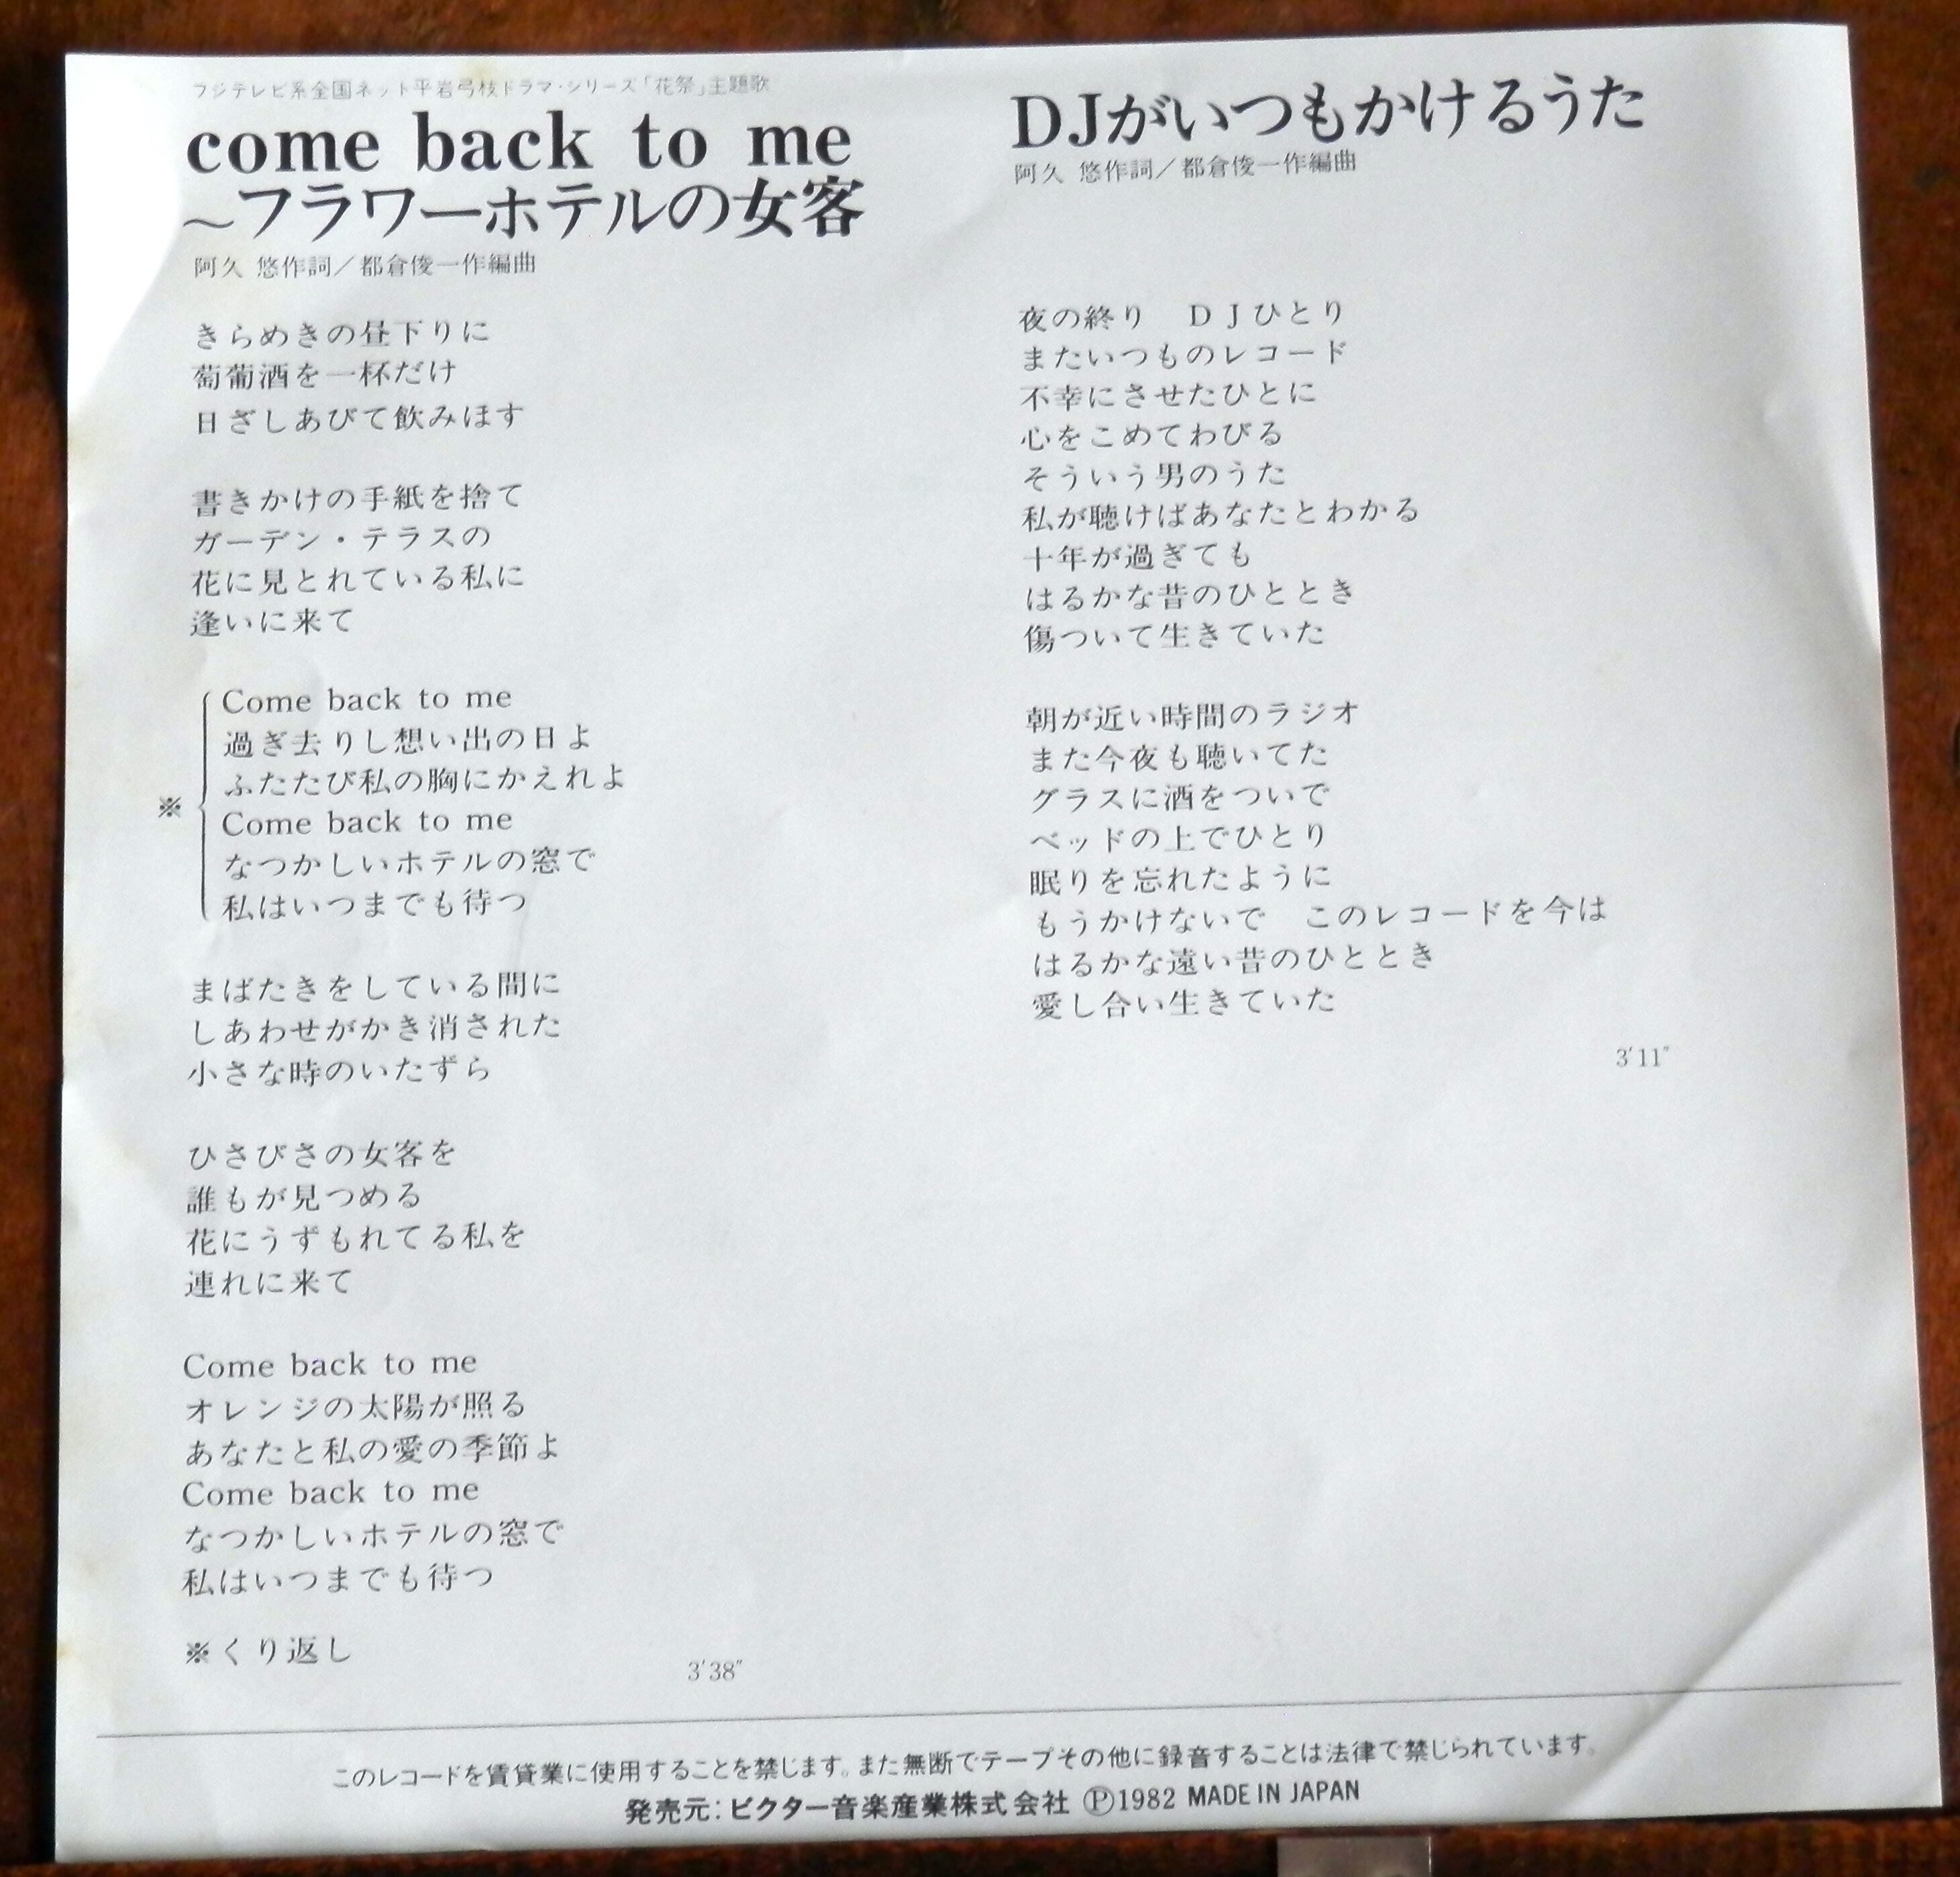 フジテレビ系全国ネット平岩弓枝ドラマ・シリーズ「花祭」主題歌
come back to me
～フラワーホテルの女客
阿久 悠作詞／都倉俊一作編曲
きらめきの昼下りに
葡萄酒を一杯だけ
日ざしあびて飲みほす
書きかけの手紙を捨て
ガーデン・テラスの
花に見とれている私に
逢いに来て
※
Come back to me
過ぎ去りし想い出の日よ
ふたたび私の胸にかえれよ
Come back to me
なつかしいホテルの窓で
私はいつまでも待つ
まばたきをしている間に
しあわせがかき消された
小さな時のいたずら
ひさびさの女客を
誰もが見つめる
花にうずもれてる私を
連れに来て
Come back to me
オレンジの太陽が照る
あなたと私の愛の季節よ
Come back to me
なつかしいホテルの窓で
私はいつまでも待つ
※くり返し
3′38″
DJがいつもかけるうた
阿久 悠作詞／都倉俊一作編曲
夜の終り　ＤＪひとり
またいつものレコード
不幸にさせたひとに
心をこめてわびる
そういう男のうた
私が聴けばあなたとわかる
十年が過ぎても
はるかな昔のひととき
傷ついて生きていた
朝が近い時間のラジオ
また今夜も聴いてた
グラスに酒をついで
ベッドの上でひとり
眠りを忘れたように
もうかけないで　このレコードを今は
はるかな遠い昔のひととき
愛し合い生きていた
3′11″
このレコードを賃貸業に使用することを禁じます。また無断でテープその他に録音することは法律で禁じられています。
発売元：ビクター音楽産業株式会社 Ⓟ1982 MADE IN JAPAN